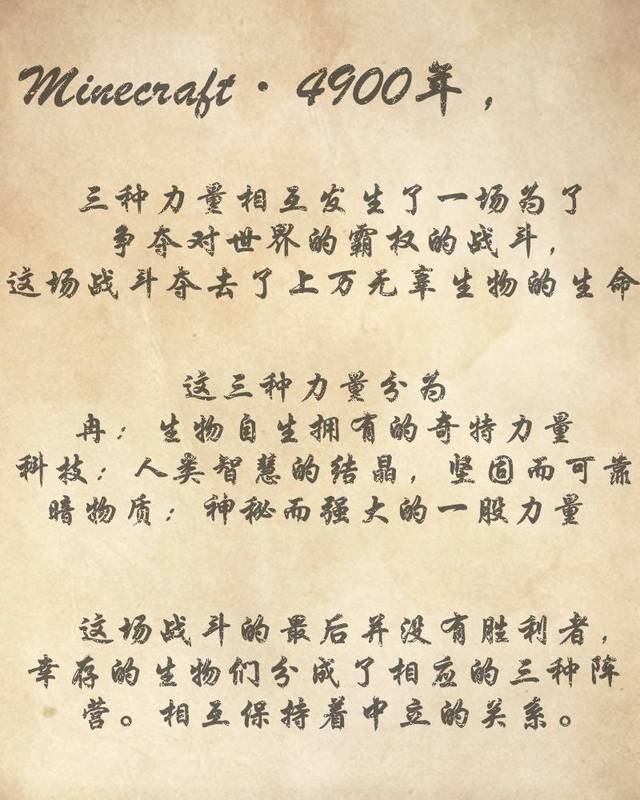 Minecraft · 4900年，
三种力量相互发生了一场为了
争夺对世界的霸权的战斗，
这场战斗夺去了上万无辜生物的生命
这三种力量分为
冉：生物自生拥有的奇特力量
科技：人类智慧的结晶，坚固而可靠
暗物质：神秘而强大的一股力量
这场战斗的最后并没有胜利者，
幸存的生物们分成了相应的三种阵
营。相互保持着中立的关系。